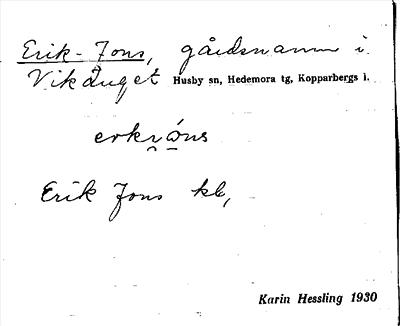 Erik-Jons, gårdsnamn i
Vikånget Husby sn, Hedemora tg, Kopparbergs l.
erkrόns
Erik Jons kb,
Karin Hessling 1930